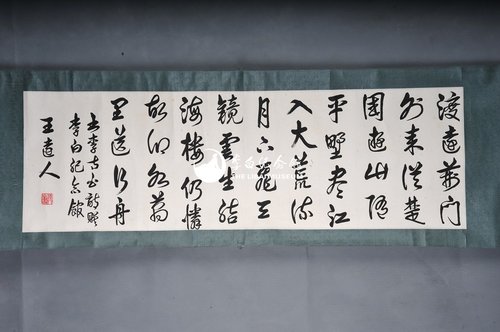 渡遠荊門
外來從楚
國遊山隨
平野盡江
入大荒流
月下飛天
鏡雲生結
海樓仍憐
故鄉水萬
里送行舟
書李太白詩贈
李白紀念館
王人
李白纪念馆
THE LIBAI MUSEUM